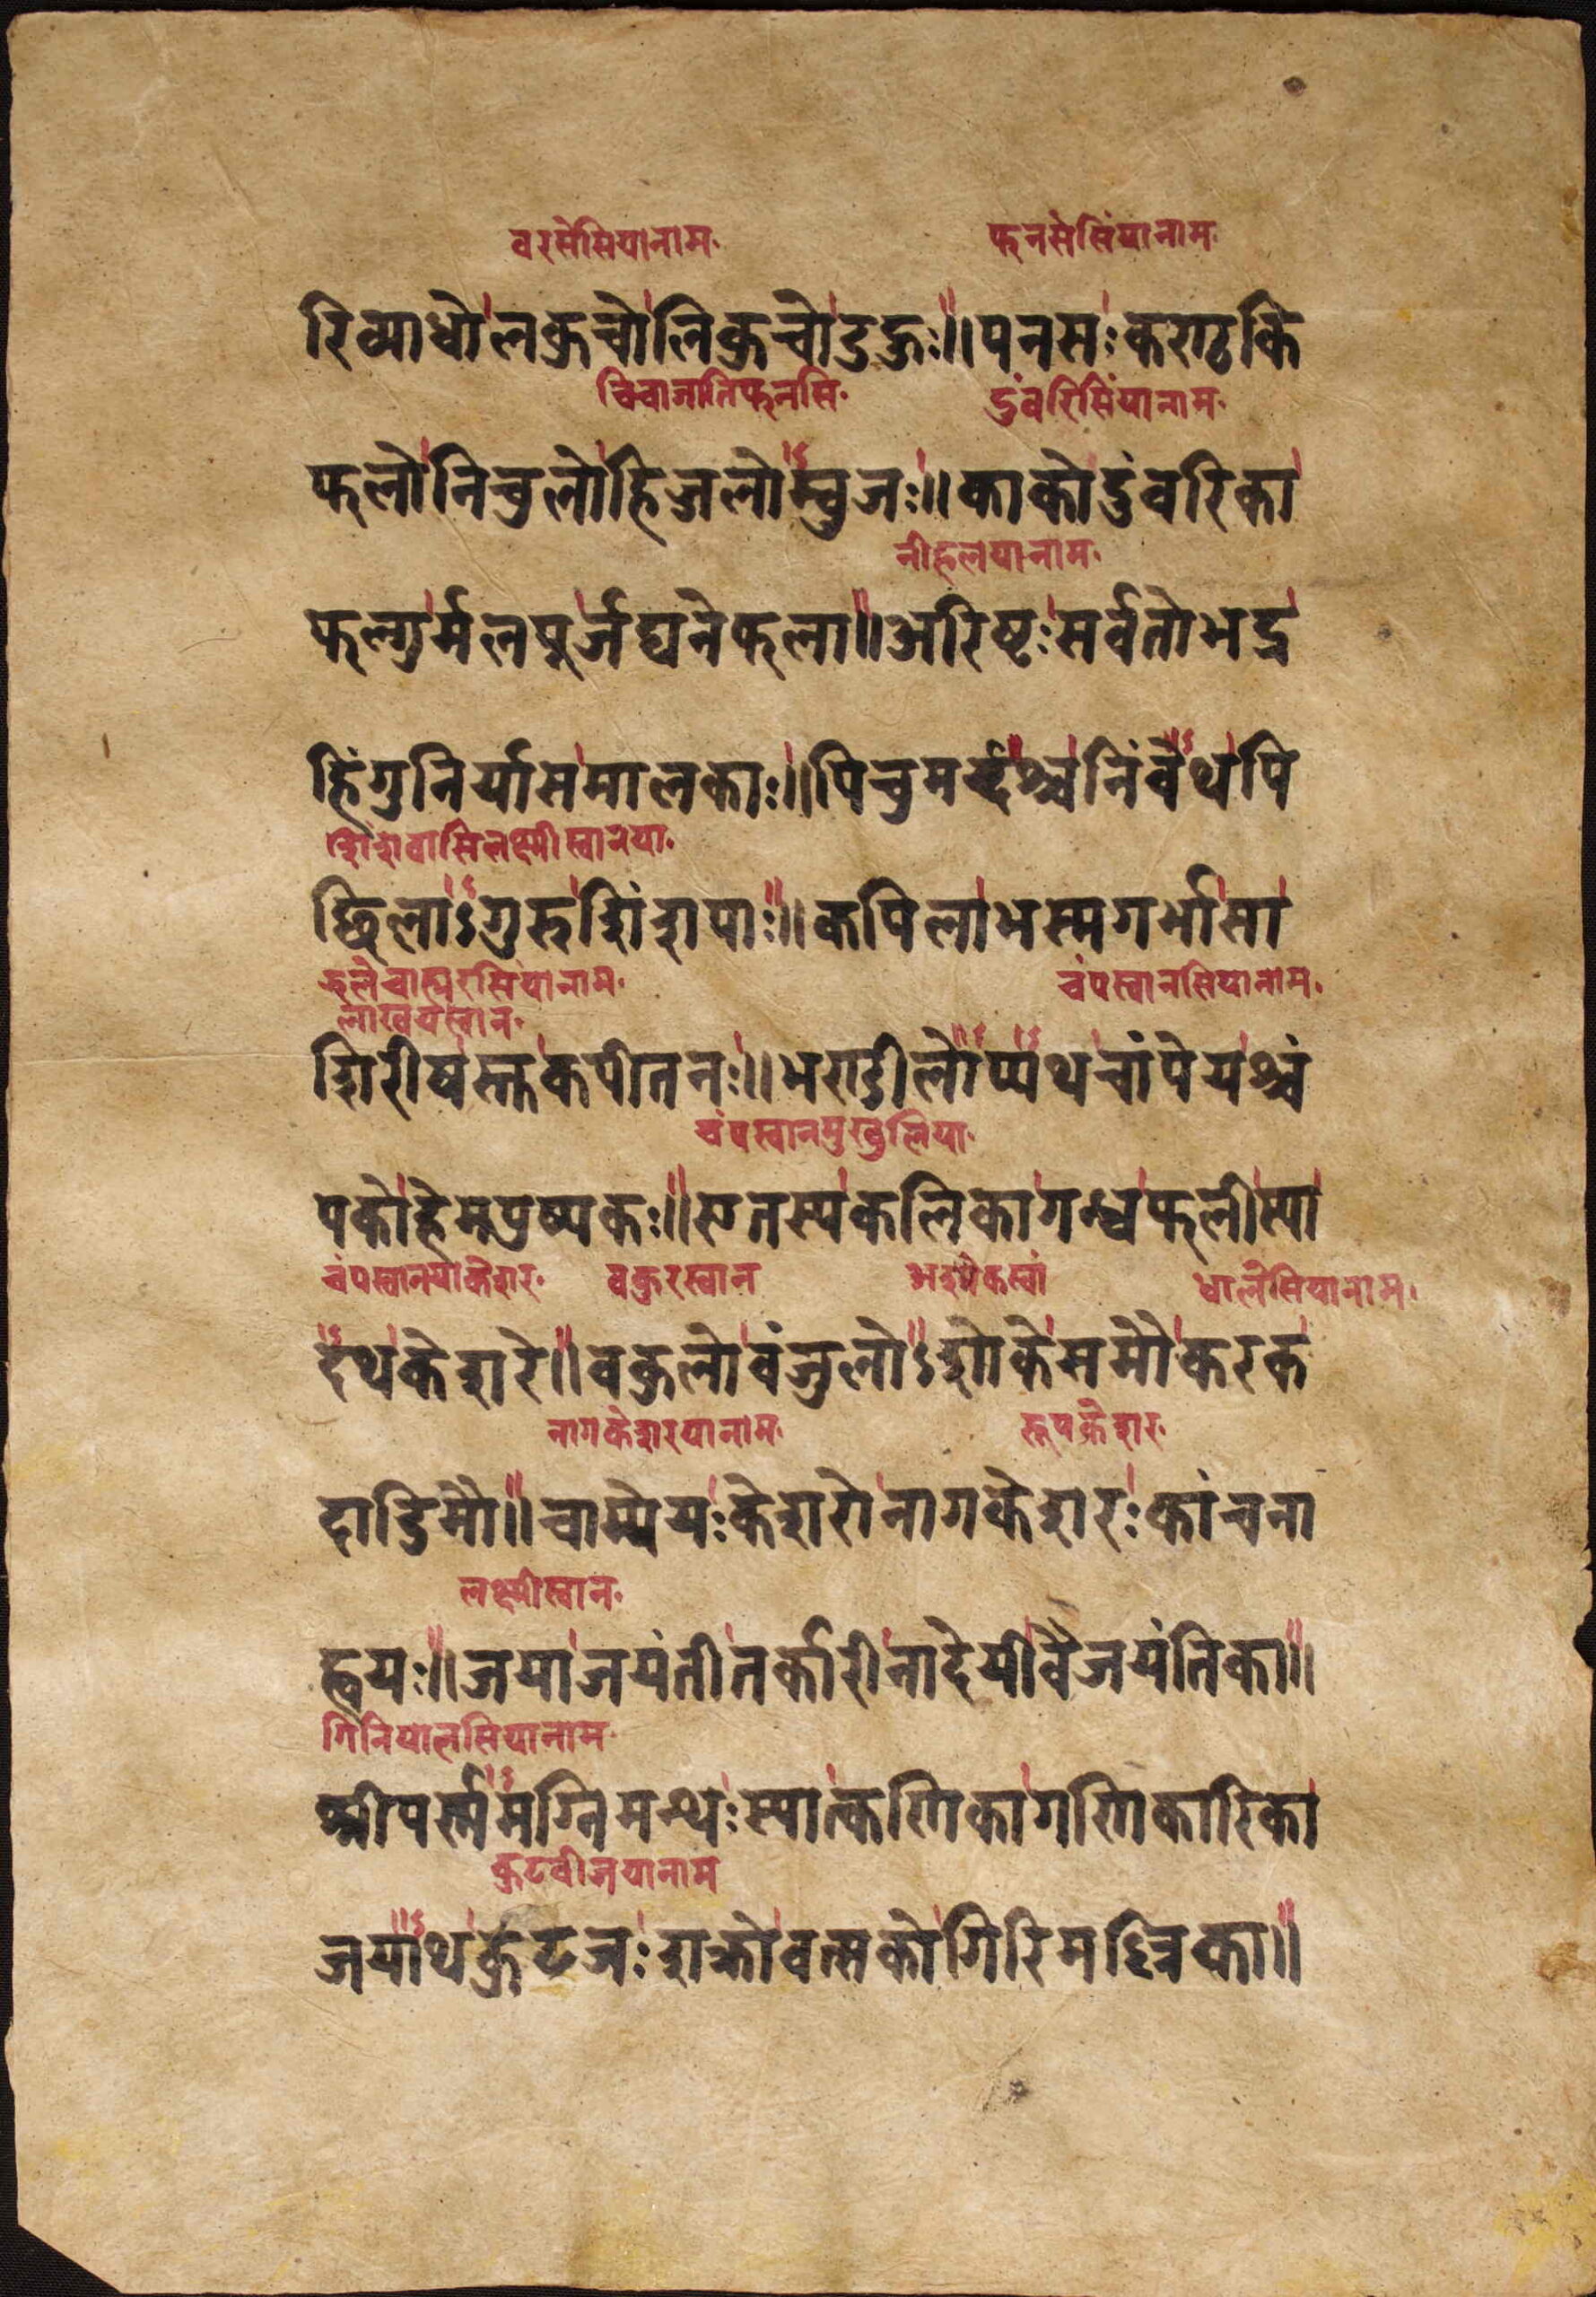 वरसेसियानाम.
फनसेसिंयानाम.
रिव्याधोलकुचोलिकुचोडुहुः॥पनसःकण्टकि
चिवाजातिफनसि.
दुंबरिसिंयानाम.
फलोनिचुलोहिज्जलोम्बुजः॥काकोदुंवरिका
नीह्मलयानाम.
फल्गुर्मलपूर्जघनेफला॥अरिष्टःसर्वतोभद्र
हिंगुनिर्यासमालकाः॥पिचुमर्द्दश्चनिंवेथपि
शिंशवासिलक्ष्मीस्वानया.
च्छिलाऽगुरुशिंशपाः॥कपिलाभस्मगर्भासा
चंपस्वानसियानाम.
लाखयस्वान.
शिरीषस्तकपीतनः॥भण्डीलोप्यथचांपेयश्चं
चंपस्वानमुखुलिया.
पकोहेमपुष्पकः॥एतस्यकलिकागन्धफलीस्या
चंपस्वानयाकेशर.
वकुरस्वान
धालेसियानाम.
दथकेशरे॥वकुलोवंजुलोऽशोकेसमौकरक
नागकेशरयानाम.
रूपकेशर.
दाडिमौ॥चाम्पेयःकेशरोनागकेशरःकांचना
लक्ष्मीस्वान.
ह्वयः॥जयाजयंतीतर्कारीनादेयीवैजयंतिका॥
गिनियालसियानाम.
श्रीपर्ण्णमग्निमन्थःस्यात्कणिकागणिकारिका
कुटवीजयानाम
जयाथकुटजःशक्रोवत्सकोगिरिमल्लिका॥